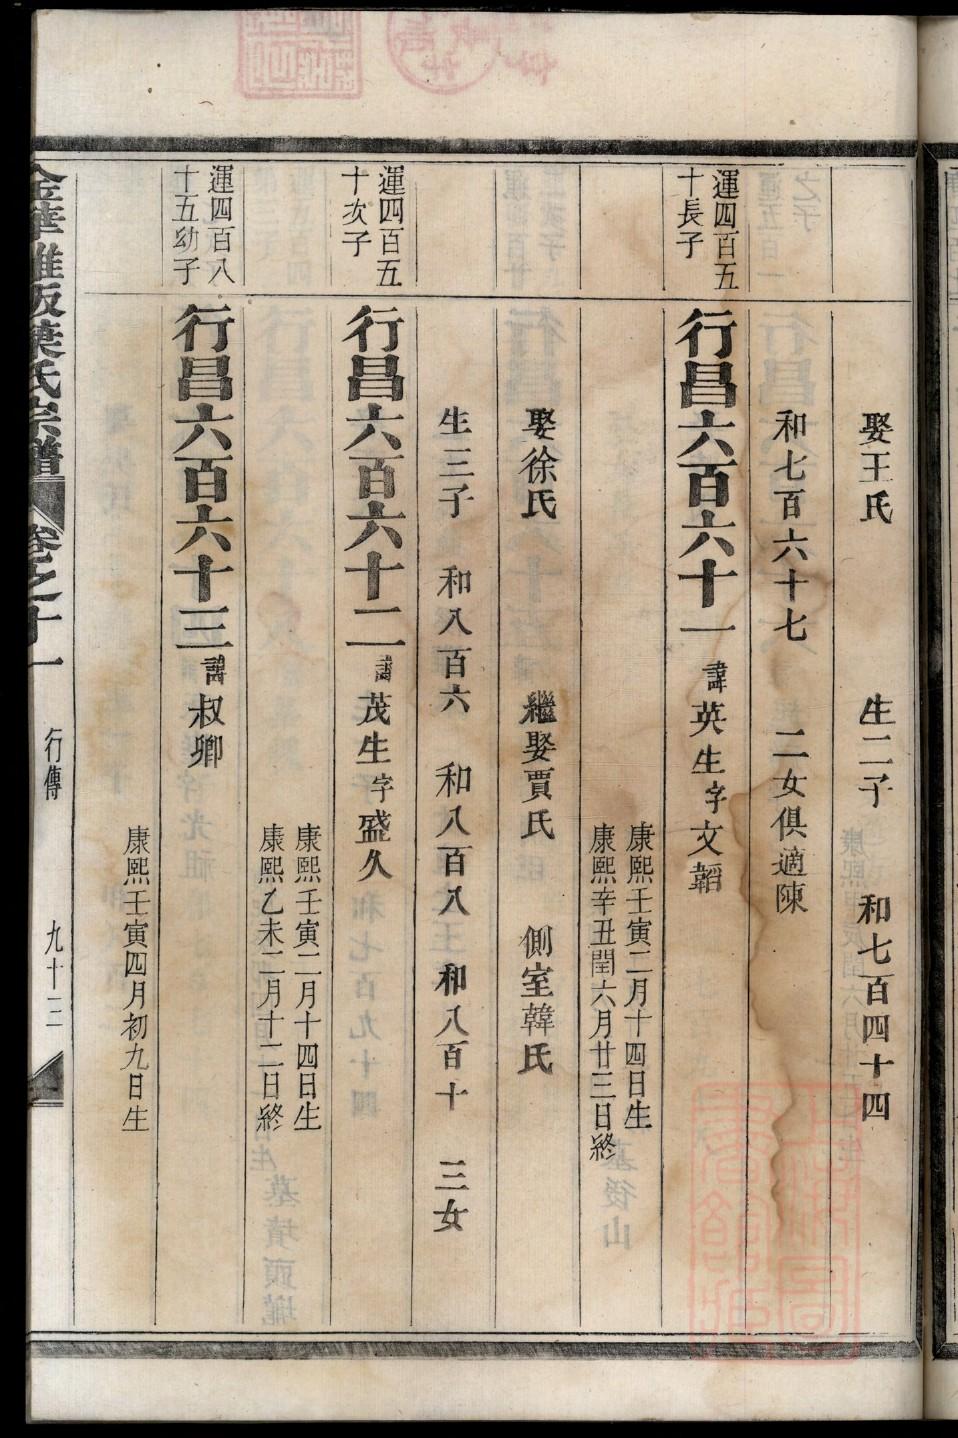 娶王氏　生二子　和七百四十四
和七百六十七　二女俱適陳
運四百五
十長子
行昌六百六十一　諱英生字文韜
康熙壬寅二月十四日生
康熙辛丑閏六月廿三日終
娶徐氏　繼娶賈氏　側室韓氏
生三子　和八百六　和八百八　和八百十　三女
運四百五
十次子
行昌六百六十二　諱茂生字盛久
康熙壬寅二月十四日生
康熙乙未二月十二日終
運四百八
十五幼子
行昌六百六十三　諱叔卿
康熙壬寅四月初九日生
金華雅畈葉氏宗譜　卷之十一　行傳　九十三